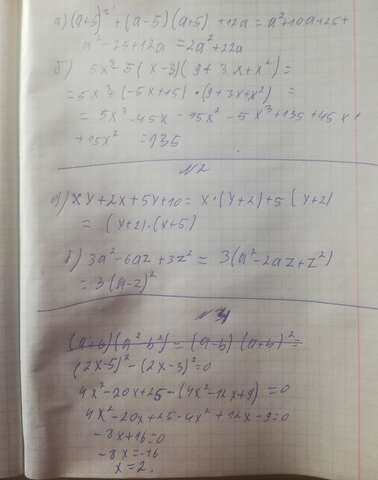 а) (a+5)² + (a-5)(a+5) + 12a = a²+10a+25+
a² - 25+12a = 2a²+22a
б) 5x³-5(x-3)(9+3x+x²)=
= 5x³+(-5x+15)·(9+3x+x²) =
= 5x³-45x-15x²-5x³+135+45x+
+15x² = 135
N2
а) xy+2x+5y+10 = x·(y+2)+5(y+2)
= (y+2)·(x+5)
б) 3a²-6az+3z² = 3(a²-2az+z²)
= 3(a-z)²
N 3
(a+b)(a²-b²) = (a-b)(a+b)²=
(2x-5)² - (2x-3)²=0
4x²-20x+25-(4x²-12x+9)=0
4x²-20x+25-4x²+12x-9=0
-8x+16=0
-8x=-16
x=2.